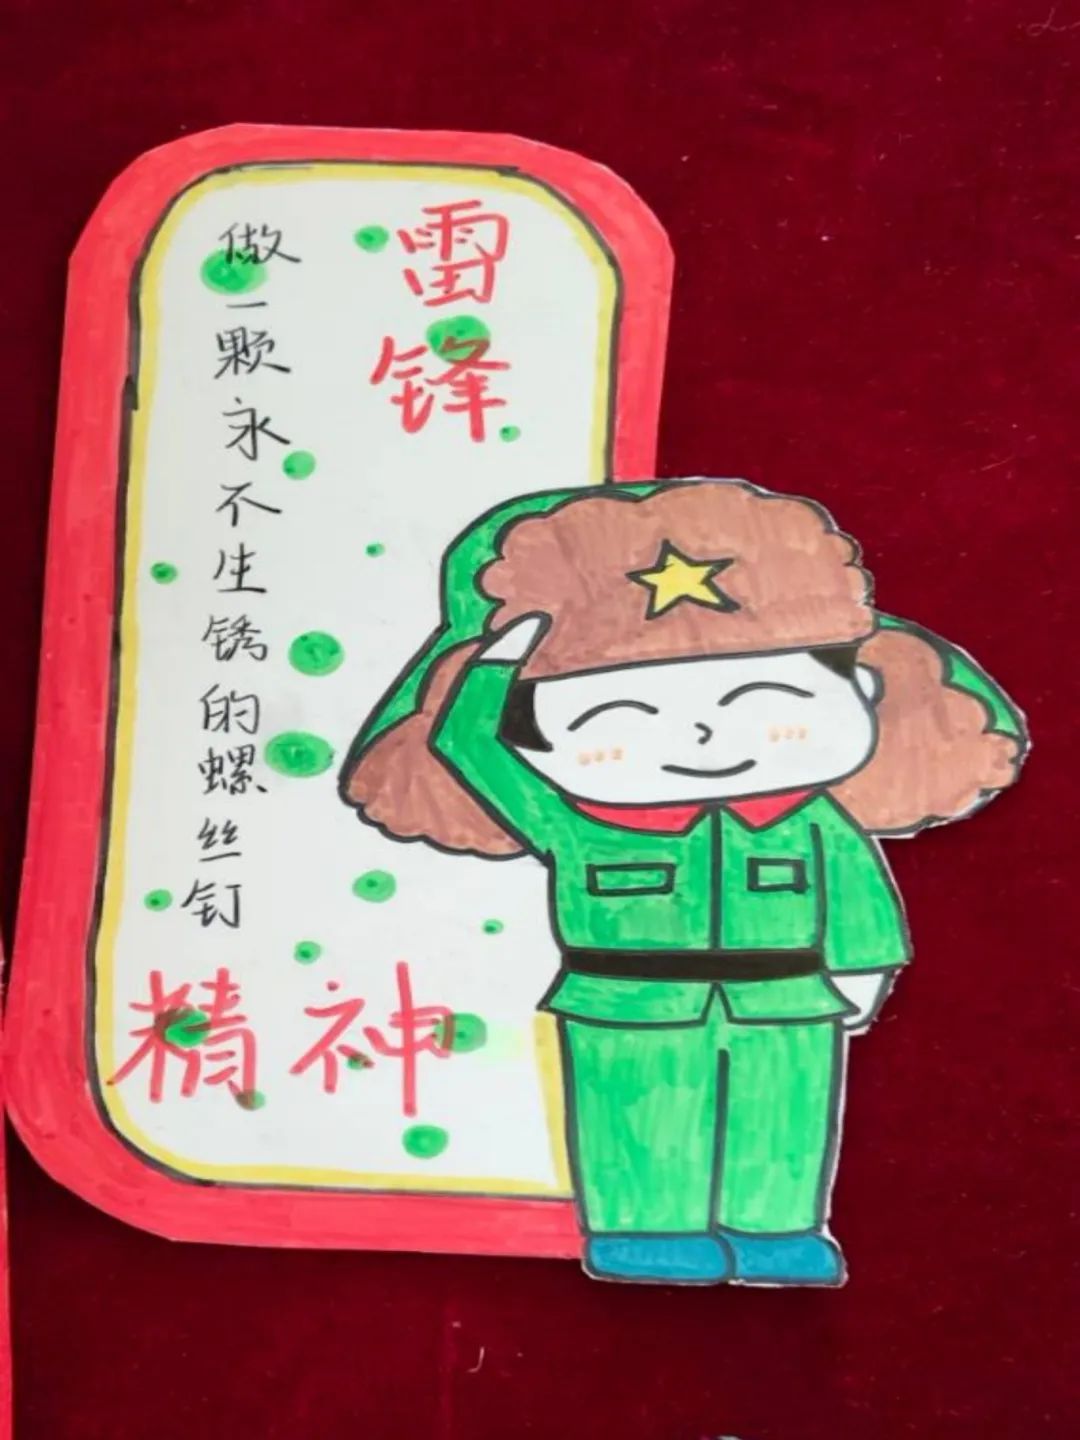 雷锋
做一颗永不生锈的螺丝钉
精神